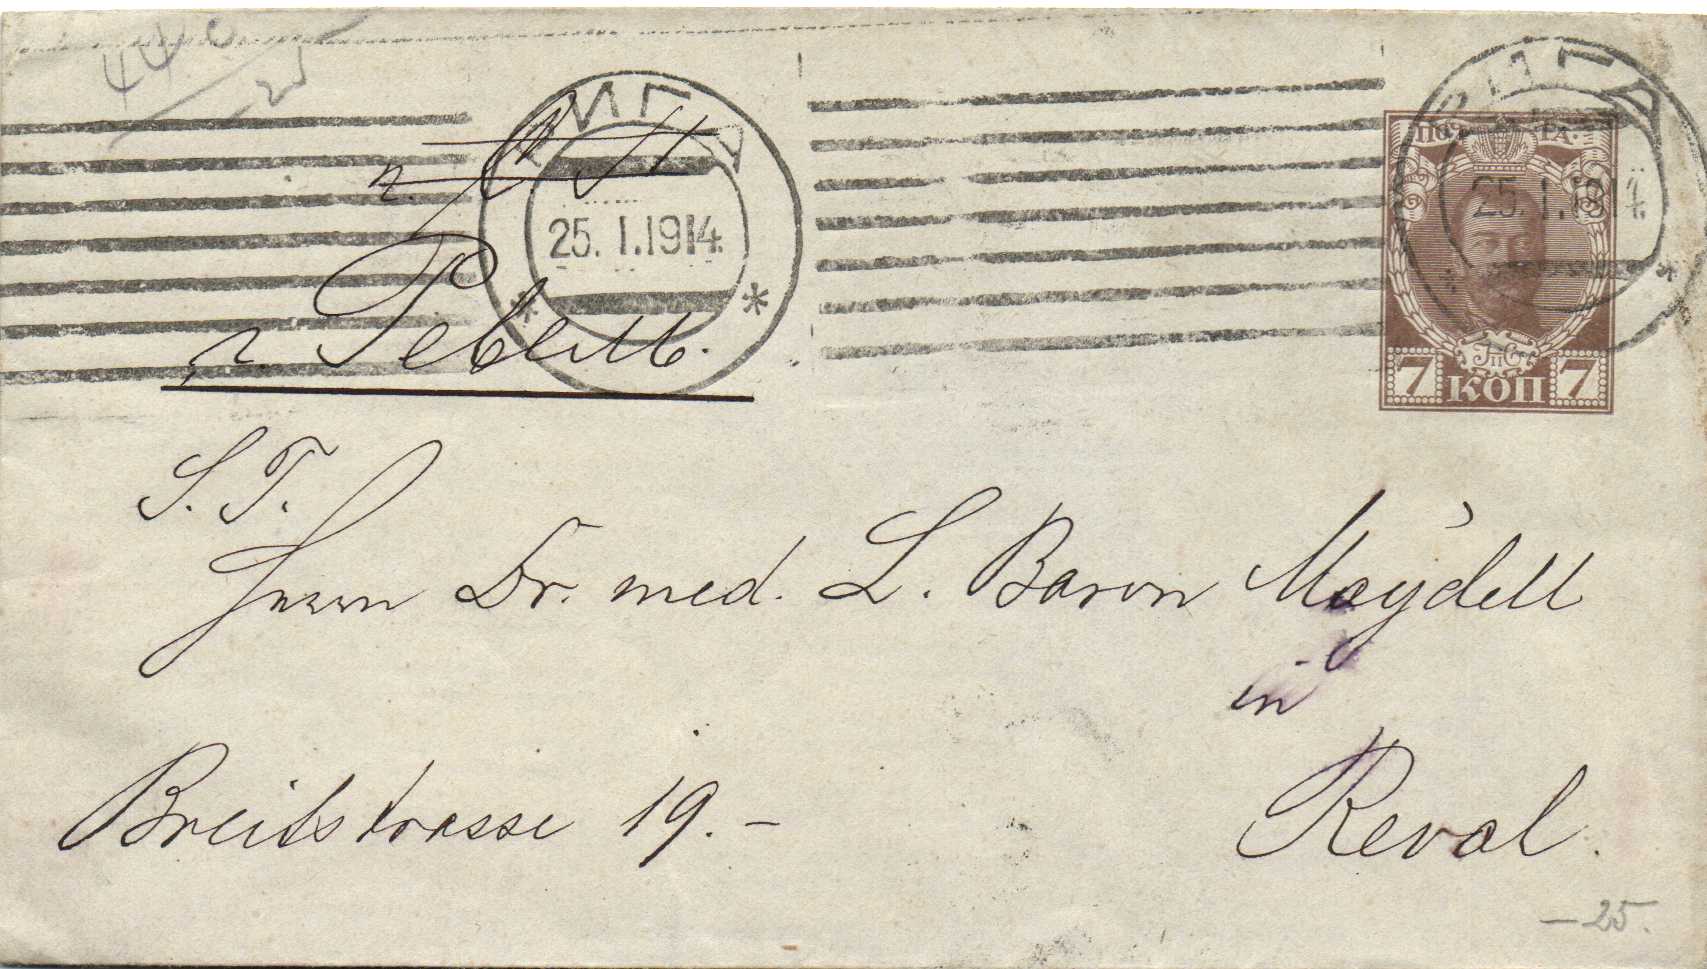 440
25
РИГА
25.1.1914.
РИГА
25.1.1914.
ПОЧТА.
7 КОП 7
г.
г. Ревель.
S. T.
Herrn Dr. med. L. Baron Maydell
in
Reval.
Breitstrasse 19.–
–25.